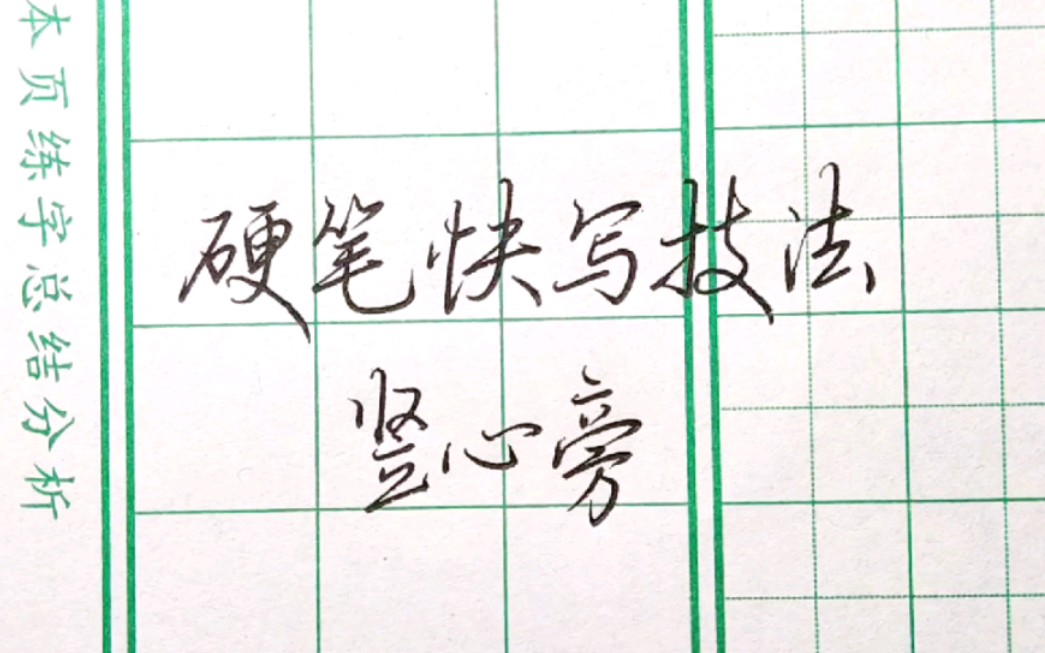 本页练字总结分析
硬笔快写技法
竖心旁